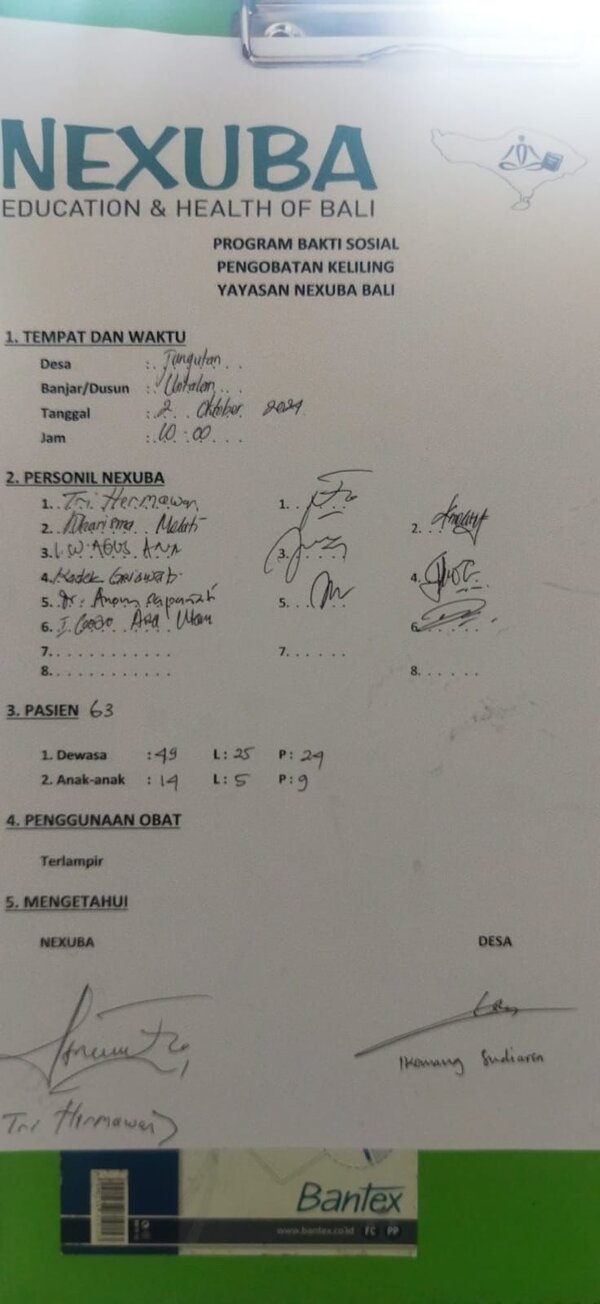 NEXUBA
EDUCATION & HEALTH OF BALI
PROGRAM BAKTI SOSIAL
PENGOBATAN KELILING
YAYASAN NEXUBA BALI
1. TEMPAT DAN WAKTU
Desa : Tangutan
Banjar/Dusun : Untalan
Tanggal : 2 Oktober 2024
Jam : 10:00
2. PERSONIL NEXUBA
1. Tri Hermawan 1.
2. Kharisma Melati 2.
3. I.W. AGUS 3.
4. Kadek 4.
5. dr. 5.
6. I 6.
7. 7.
8. 8.
3. PASIEN 63
1. Dewasa : 49 L: 25 P: 24
2. Anak-anak : 14 L: 5 P: 9
4. PENGGUNAAN OBAT
Terlampir
5. MENGETAHUI
NEXUBA DESA
I Komang Sudiaren
Tri Hermawan
Bantex
www.bantex.co.id FC PP